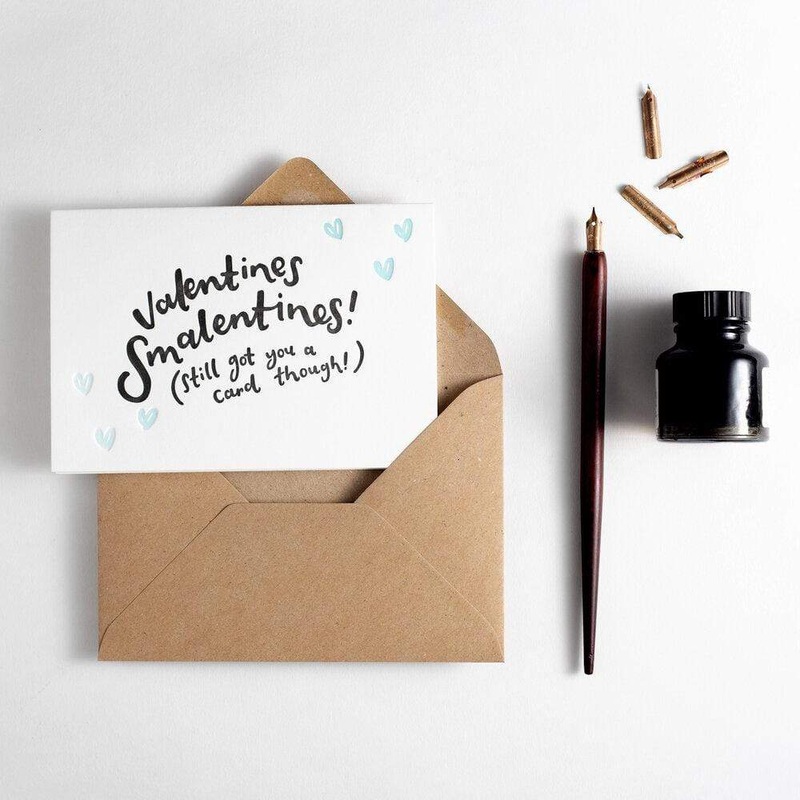 Valentines
Smalentines!
(still got you a
card though!)